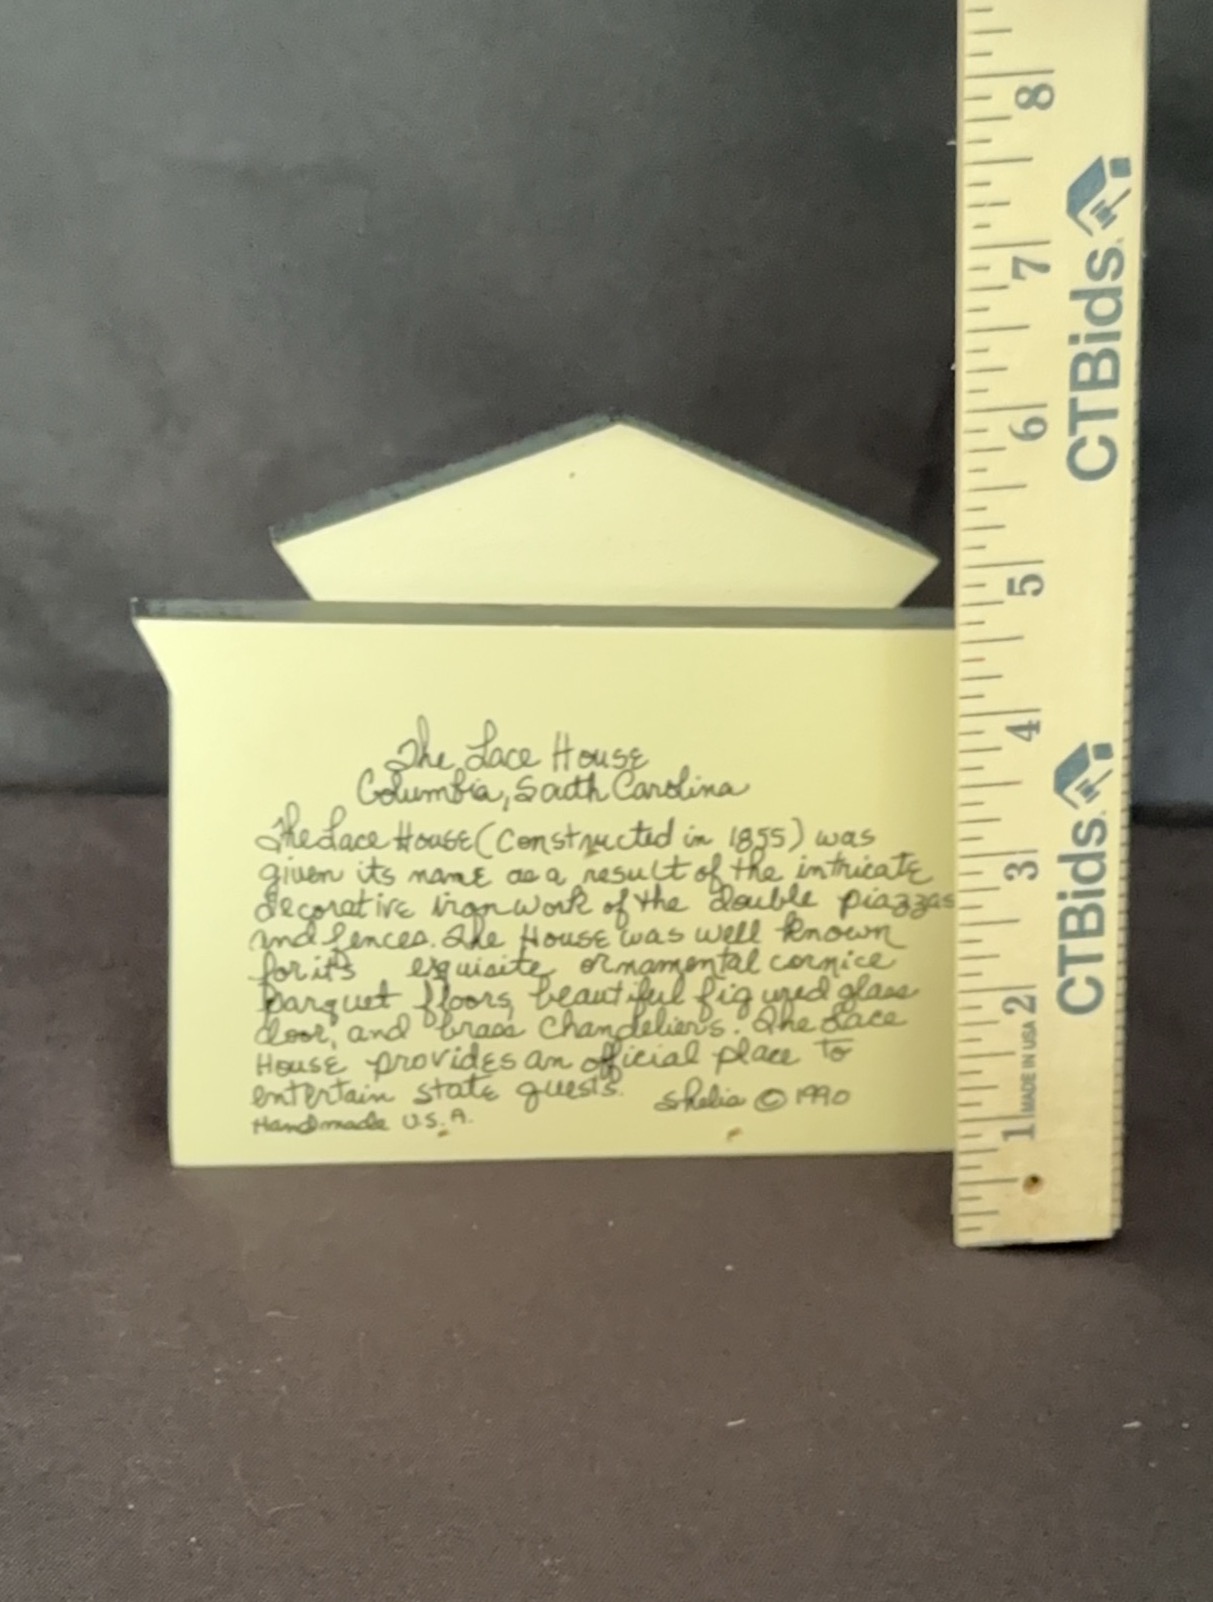 The Lace House
Columbia, South Carolina
The Lace House (constructed in 1855) was
given its name as a result of the intricate
decorative iron work of the double piazzas
and fences. The House was well known
for it's exquisite ornamental cornice
parquet floors, beautiful figured glass
door, and brass chandeliers. The Lace
House provides an official place to
entertain state guests. Shelia © 1990
Handmade U.S.A.
8
7
6
5
4
3
2
1
MADE IN USA
CTBids.
CTBids.